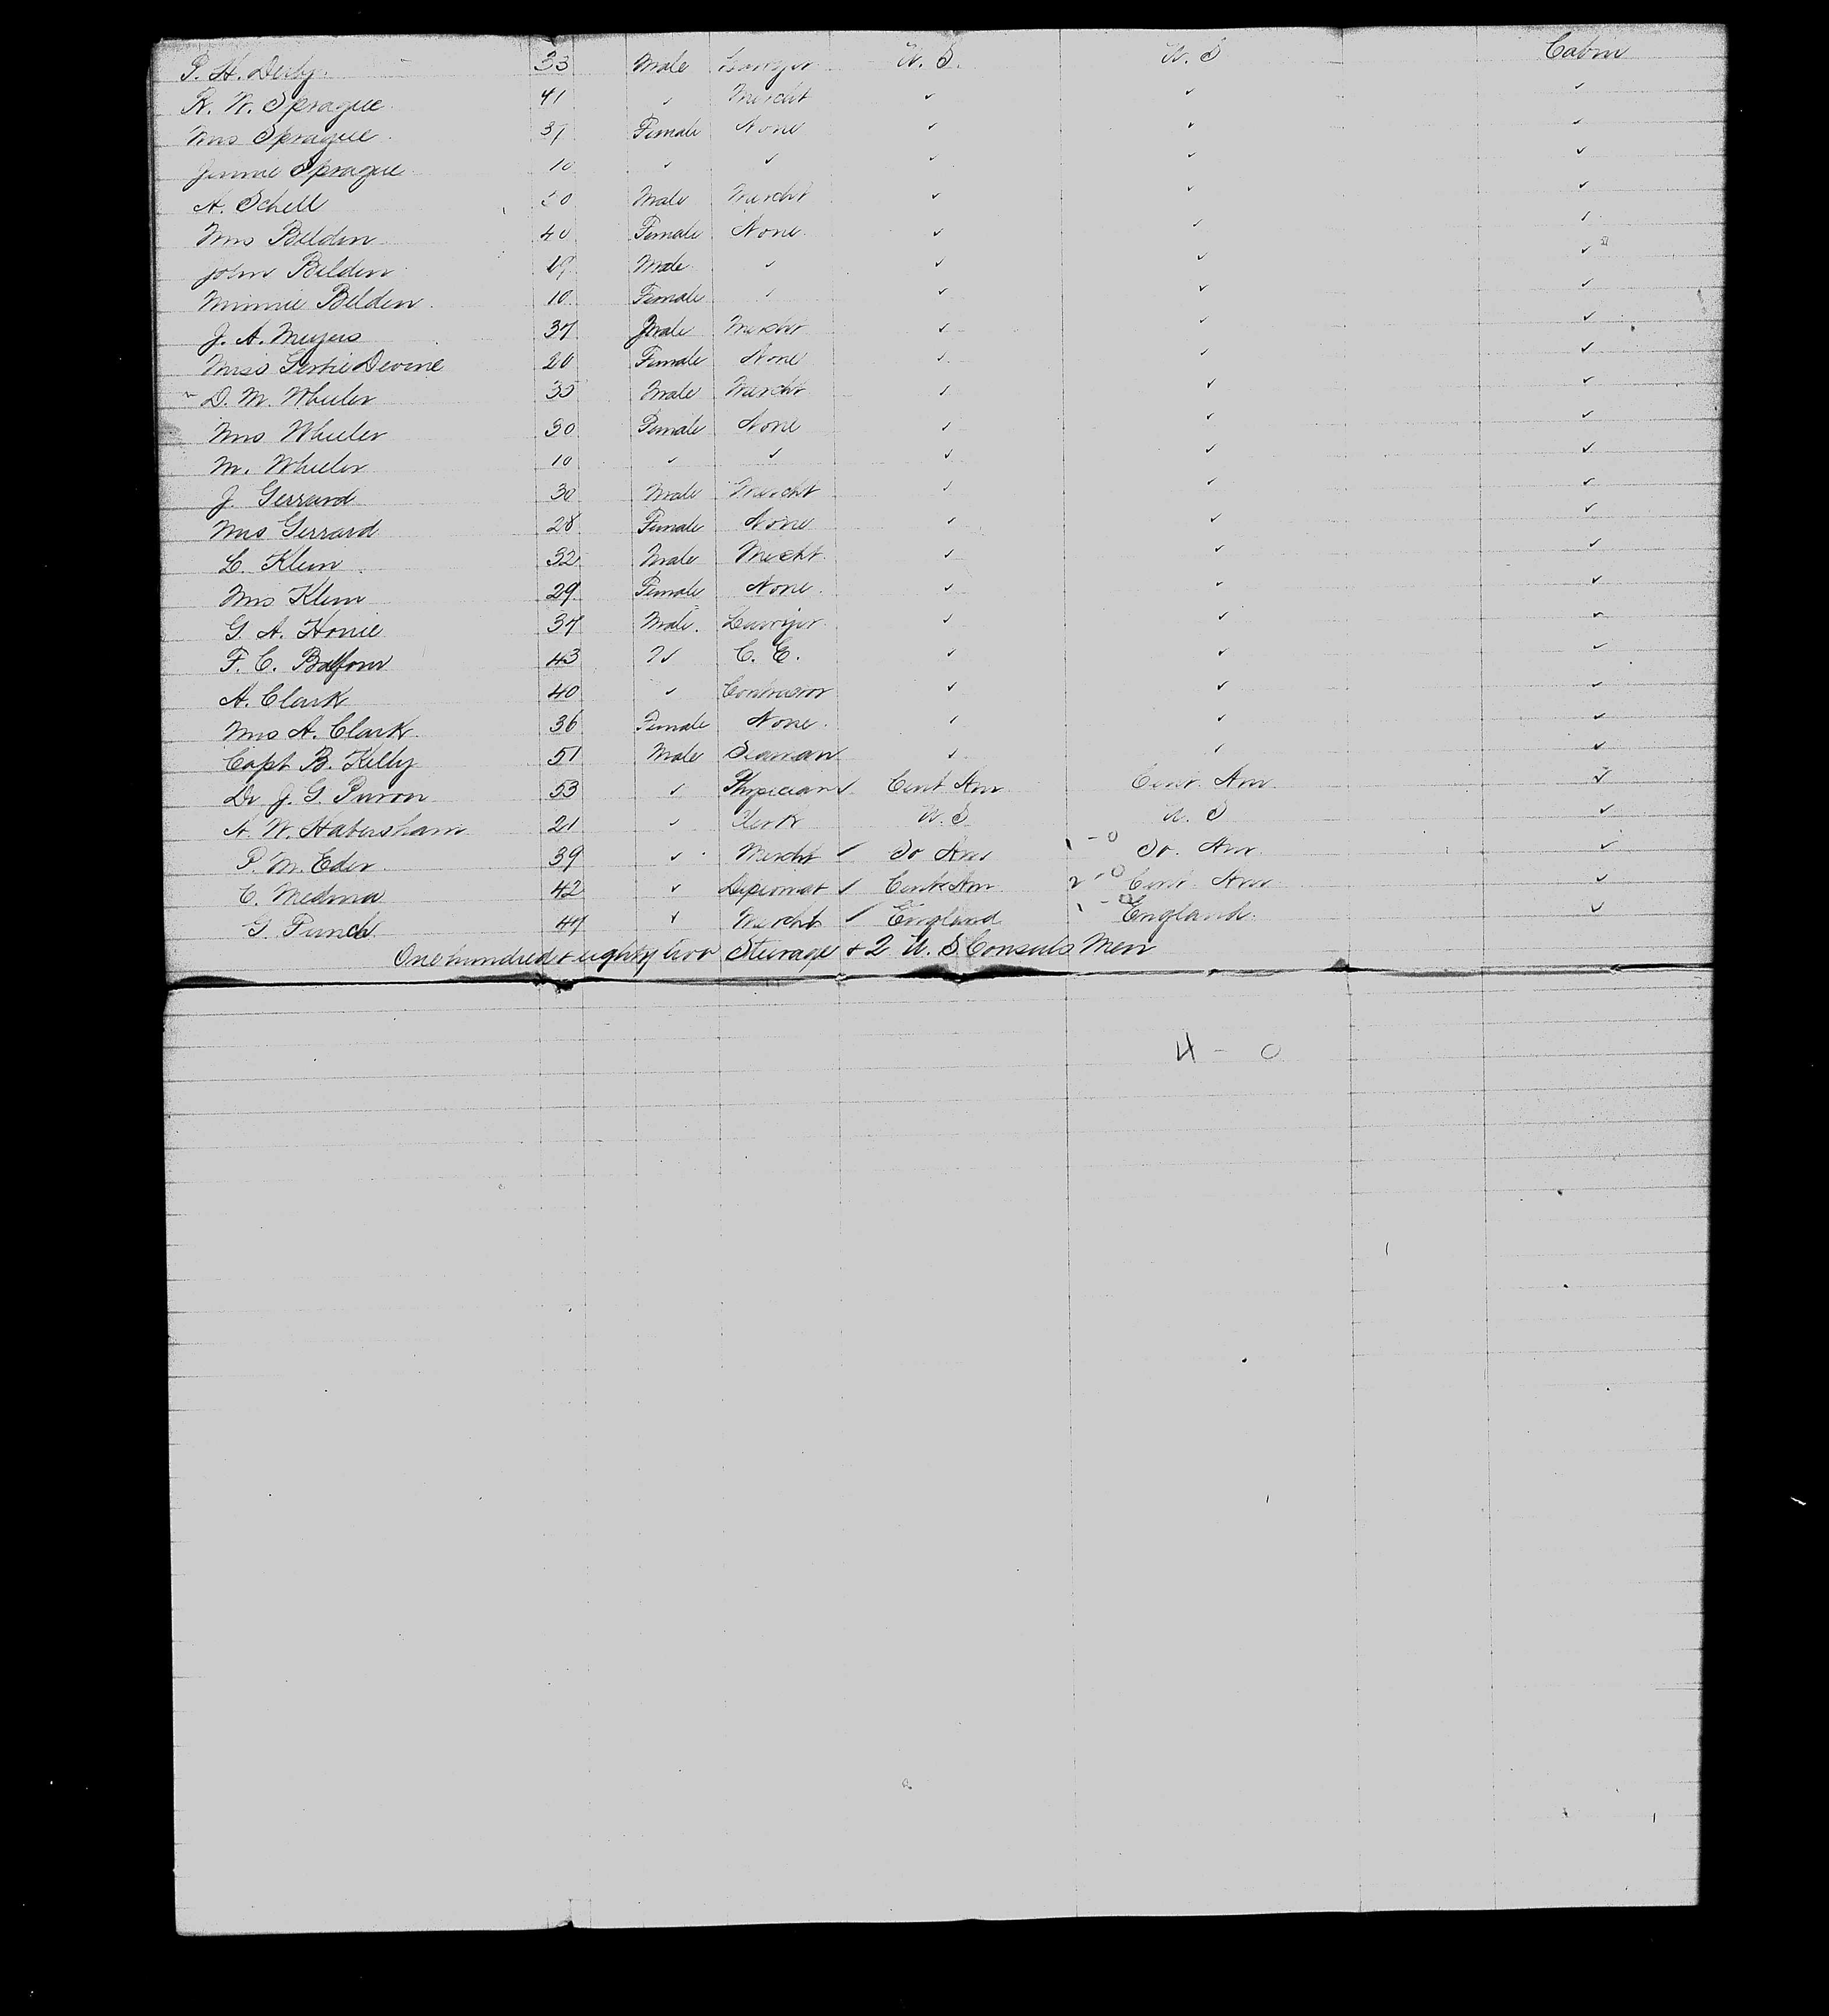 P. H. Derby 33 Male Lawyer U. S. U. S Cabin
R. W. Sprague 41 ✓ Mercht ✓ ✓ ✓
Mrs Sprague 37 Female None ✓ ✓ ✓
Jennie Sprague 10 ✓ ✓ ✓ ✓ ✓
A. Schell 30 Male Mercht ✓ ✓ ✓
Mrs Belden 40 Female None ✓ ✓ ✓
John Belden 19 Male ✓ ✓ ✓ ✓
Minnie Belden 10 Female ✓ ✓ ✓ ✓
J. A. Meyers 37 Male Mercht ✓ ✓ ✓
Miss Devine 20 Female None ✓ ✓ ✓
D. M. Wheeler 35 Male Mercht ✓ ✓ ✓
Mrs Wheeler 30 Female None ✓ ✓ ✓
M. Wheeler 10 ✓ ✓ ✓ ✓ ✓
J. Gerrard 30 Male Mercht ✓ ✓ ✓
Mrs Gerrard 28 Female None ✓ ✓ ✓
L. Klein 32 Male Mercht ✓ ✓ ✓
Mrs Klein 29 Female None ✓ ✓ ✓
G. A. 37 Male Lawyer ✓ ✓ ✓
F. C. Balfour 43 ✓ C. E. ✓ ✓ ✓
A. Clark 40 ✓ Contractor ✓ ✓ ✓
Mrs A. Clark 36 Female None ✓ ✓ ✓
Capt B. Kelly 51 Male Seaman ✓ ✓ ✓
Dr J. G. 53 ✓ Physician ✓ Cent Am Cent. Am ✓
A. W. Habersham 21 ✓ Clerk U. S U. S ✓
P. M. Eder 39 ✓ Mercht ✓ So Am 1 - 0 So. Am ✓
C. Medina 42 ✓ Diplomat ✓ Cent Am 2 - 0 Cent. Am ✓
G. Punch 47 ✓ Mercht ✓ England 1 - 0 England ✓
One hundred & eighty two Steerage & 2 U. S Consuls Men
4 - 0